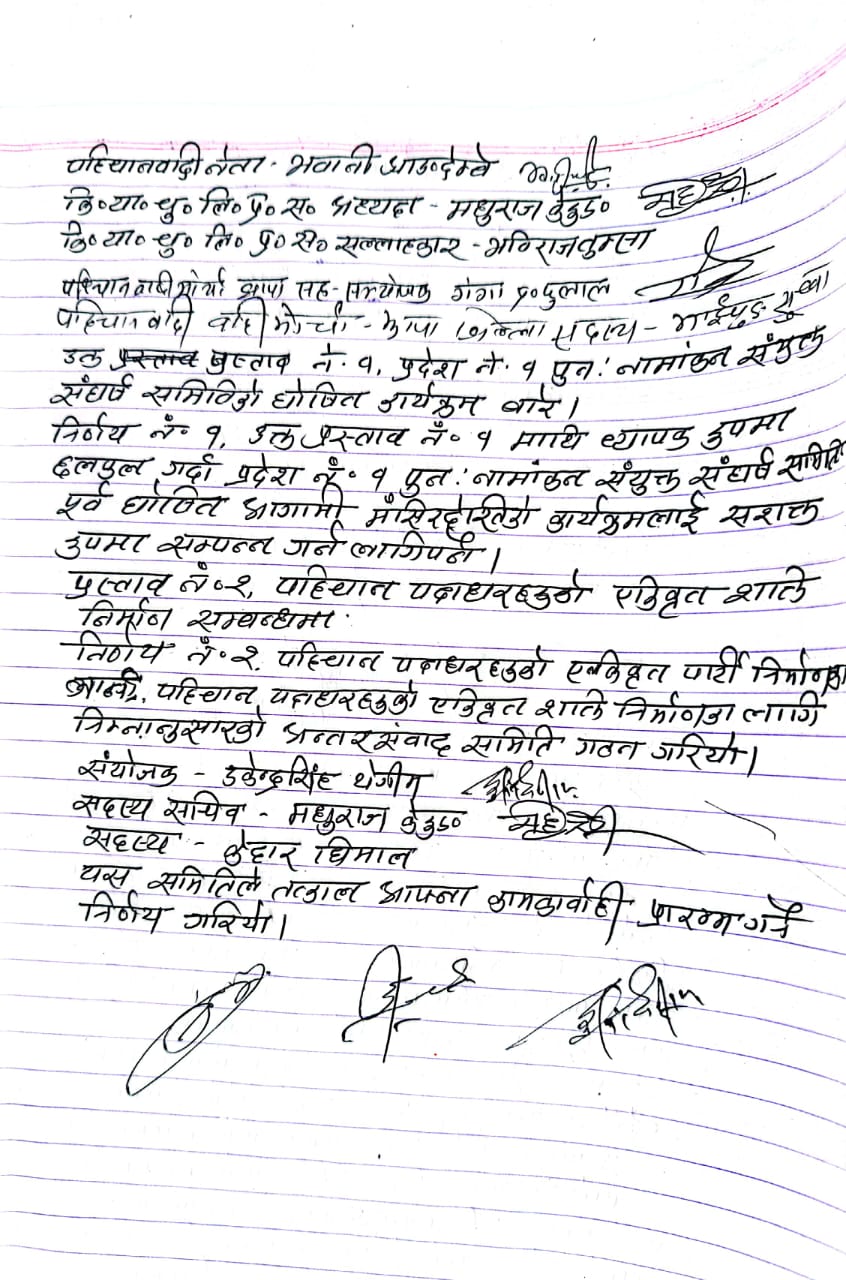 पहिचानवादी नेता - भवानी आङदेम्बे
कि०या०थु०लि०प्र०स० अध्यक्ष - मधुराज केरुङ०
कि०या०थु०लि०प्र०स० सल्लाहकार - मणिराज तुम्सा
पहिचानवादी मोर्चा झापा सह-संयोजक गंगा प्र० दुलाल
पहिचानवादी वादी मोर्चा - झापा जिल्ला सदस्य - भाईपुङ सुब्बा
उक्त प्रस्ताव प्रस्ताव नं. १, प्रदेश नं. १ पुन: नामांकन संयुक्त
संघर्ष समितिको घोषित कार्यक्रम बारे।
निर्णय नं. १, उक्त प्रस्ताव नं. १ माथि व्यापक रुपमा
छलफल गर्दा प्रदेश नं. १ पुन: नामांकन संयुक्त संघर्ष समिति
पूर्व घोषित आगामी मंसिर कार्यक्रमलाई सशक्त
रुपमा सम्पन्न गर्न लागिपर्ने।
प्रस्ताव नं.२, पहिचान पक्षधरहरुको एकिकृत शक्ति
निर्माण सम्बन्धमा
निर्णय नं.२, पहिचान पक्षधरहरुको एकिकृत पार्टी निर्माणका
लागि, पहिचान पक्षधरहरुको एकिकृत शक्ति निर्माणका लागि
निम्नानुसारको अन्तरसंवाद समिति गठन गरियो।
संयोजक - उकेन्द्रसिंह थेगीम
सदस्य सचिव - मधुराज केरुङ०
सदस्य - केदार धिमाल
यस समितिले तत्काल आफ्ना कामकार्वाही प्रारम्भ गर्ने
निर्णय गरियो।